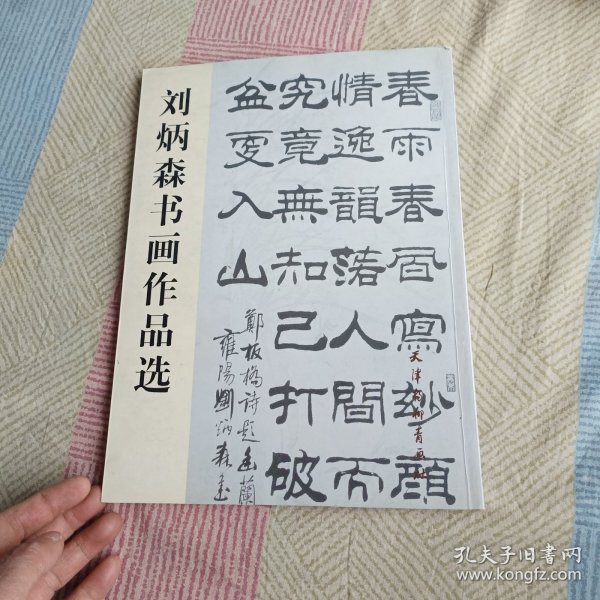 刘炳森书画作品选
春雨春风寫妙顔
情逸韻落人間而
究竟無知己打破
盆更入山
鄭板橋詩題幽蘭
雍陽劉炳森書
天津楊柳青画社
孔夫子旧书网
www.kongfz.com